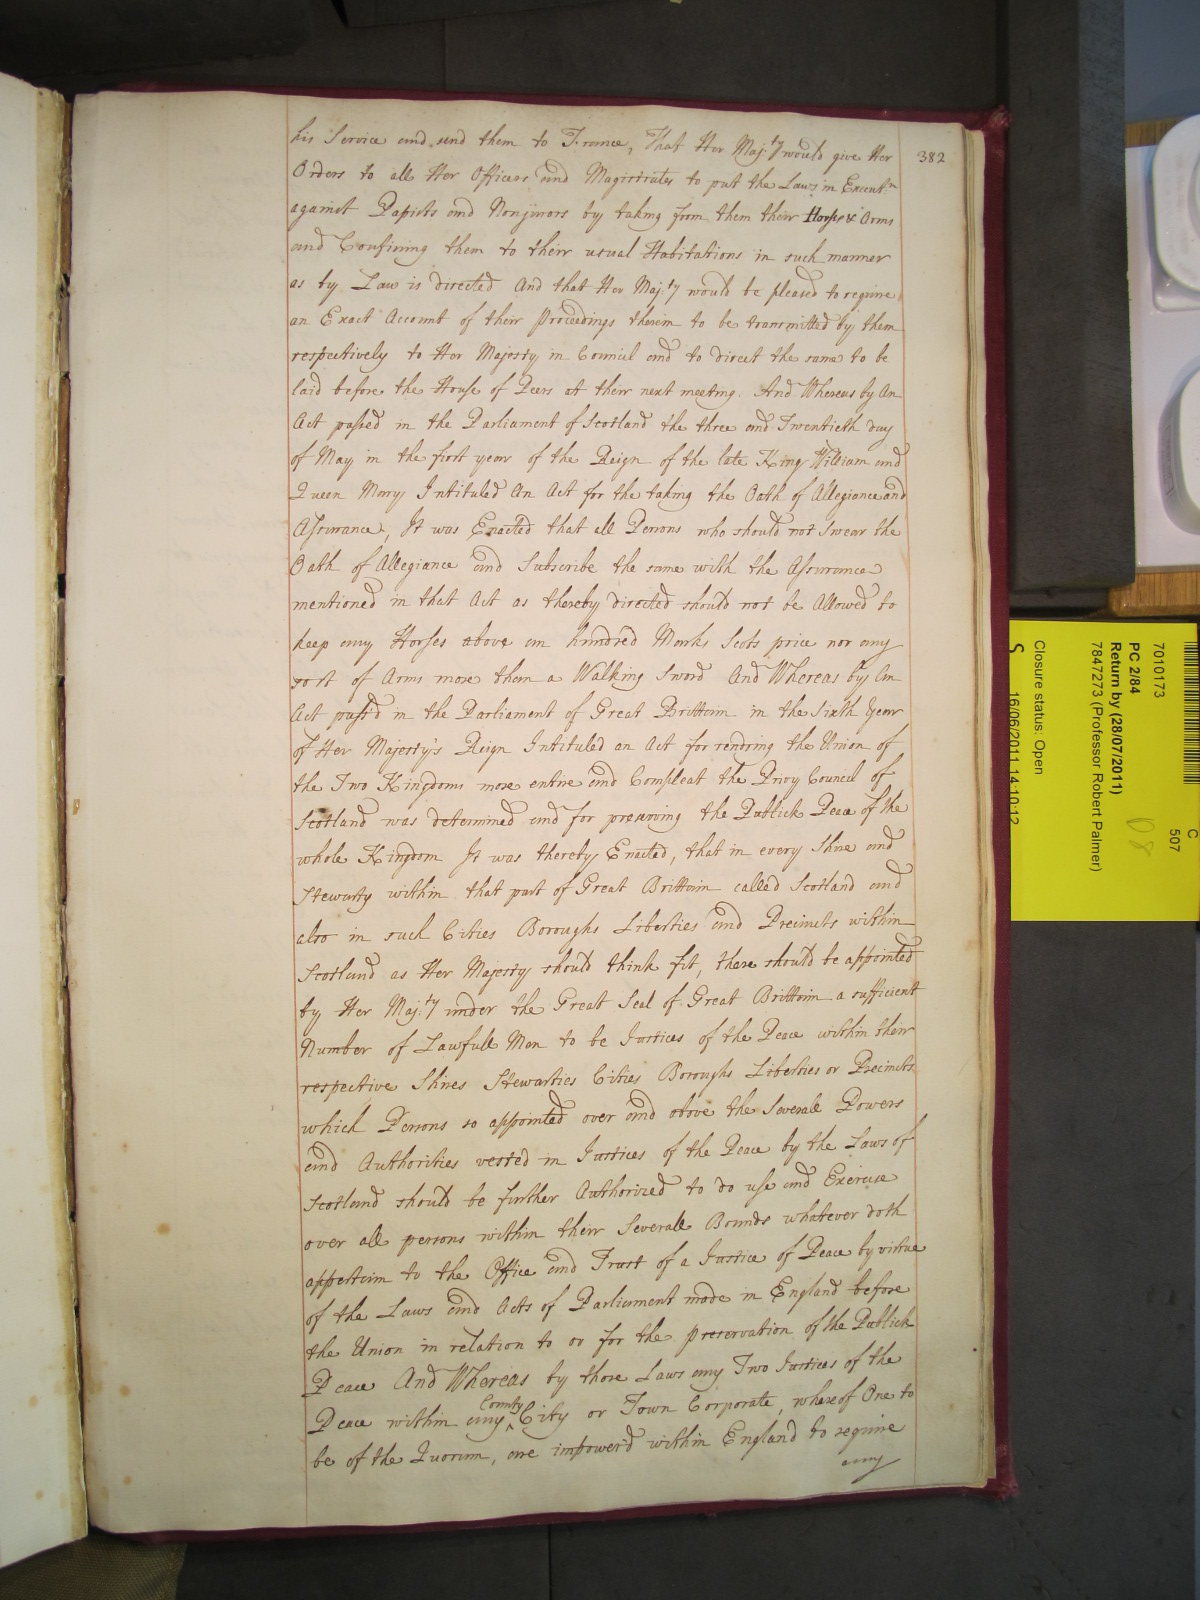 382
his Service and send them to France, That Her Maj:ty would give Her
Orders to all Her Officers and Magistrates to put the Laws in Execut:n
against Papists and Nonjurors by taking from them their Horses & Arms
and Confining them to their usual Habitations in such manner
as by Law is directed And that Her Maj:ty would be pleased to require
an Exact Account of their Proceedings therein to be transmitted by them
respectively to Her Majesty in Council and to direct the same to be
laid before the House of Peers at their next meeting. And Whereas by An
Act passed in the Parliament of Scotland the three and Twentieth day
of May in the first year of the Reign of the late King William and
Queen Mary Intituled An Act for the taking the Oath of Allegiance and
Assurance, It was Enacted that all Persons who should not Swear the
Oath of Allegiance and Subscribe the same with the Assurance
mentioned in that Act as thereby directed should not be Allowed to
keep any Horses above an hundred Marks Scots price nor any
sort of Arms more then a Walking Sword And Whereas by An
Act pass'd in the Parliament of Great Brittain in the Sixth Year
of Her Majesty's Reign Intituled an Act for rendring the Union of
the Two Kingdoms more entire and Compleat the Privy Council of
Scotland was determined and for preserving the Publick Peace of the
whole Kingdom It was thereby Enacted, that in every Shire and
Stewarty within that part of Great Brittain called Scotland and
also in such Cities Boroughs Liberties and Precincts within
Scotland as Her Majesty should think fit, there should be appointed
by Her Maj:ty under the Great Seal of Great Brittain a sufficient
Number of Lawfull Men to be Justices of the Peace within their
respective Shires Stewarties Cities Boroughs Liberties or Precincts
which Persons so appointed over and above the Severall Powers
and Authorities vested in Justices of the Peace by the Laws of
Scotland should be further Authorized to do use and Exercise
over all persons within their Severall Bounds whatever doth
appertain to the Office and Trust of a Justice of Peace by virtue
of the Laws and Acts of Parliament made in England before
the Union in relation to or for the preservation of the Publick
Peace And Whereas by those Laws any Two Justices of the
Peace within any County City or Town Corporate, whereof One to
be of the Quorum, are impower'd within England to require
any
C
507
7010173
PC 2/84
Return by (28/07/2011)
7847273 (Professor Robert Palmer)
Closure status: Open
S
16/06/2011 14:10:12